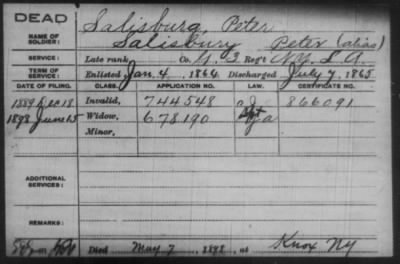 DEAD
NAME OF SOLDIER:
Salisburg Peter
Salisbury Peter (alias)
SERVICE: Late rank Co. 2 Reg't N.Y. L.A.
TERM OF SERVICE: Enlisted Jan. 4 1864 Discharged July 7, 1865
DATE OF FILING. CLASS. APPLICATION NO. LAW. CERTIFICATE NO.
Dec 18 Invalid, 744548 866091
1898 June 15 Widow, 678190
Minor,
ADDITIONAL SERVICES:
REMARKS:
Died May 7, 1898, at Knox NY